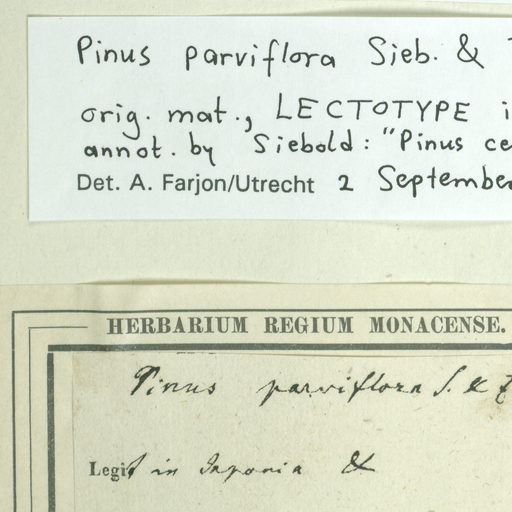 Pinus parviflora Sieb. &
orig. mat., LECTOTYPE i
annot. by Siebold: "Pinus ce
Det. A. Farjon/Utrecht 2 September
HERBARIUM REGIUM MONACENSE.
Pinus parviflora S. & Z
Legit in Japonia &